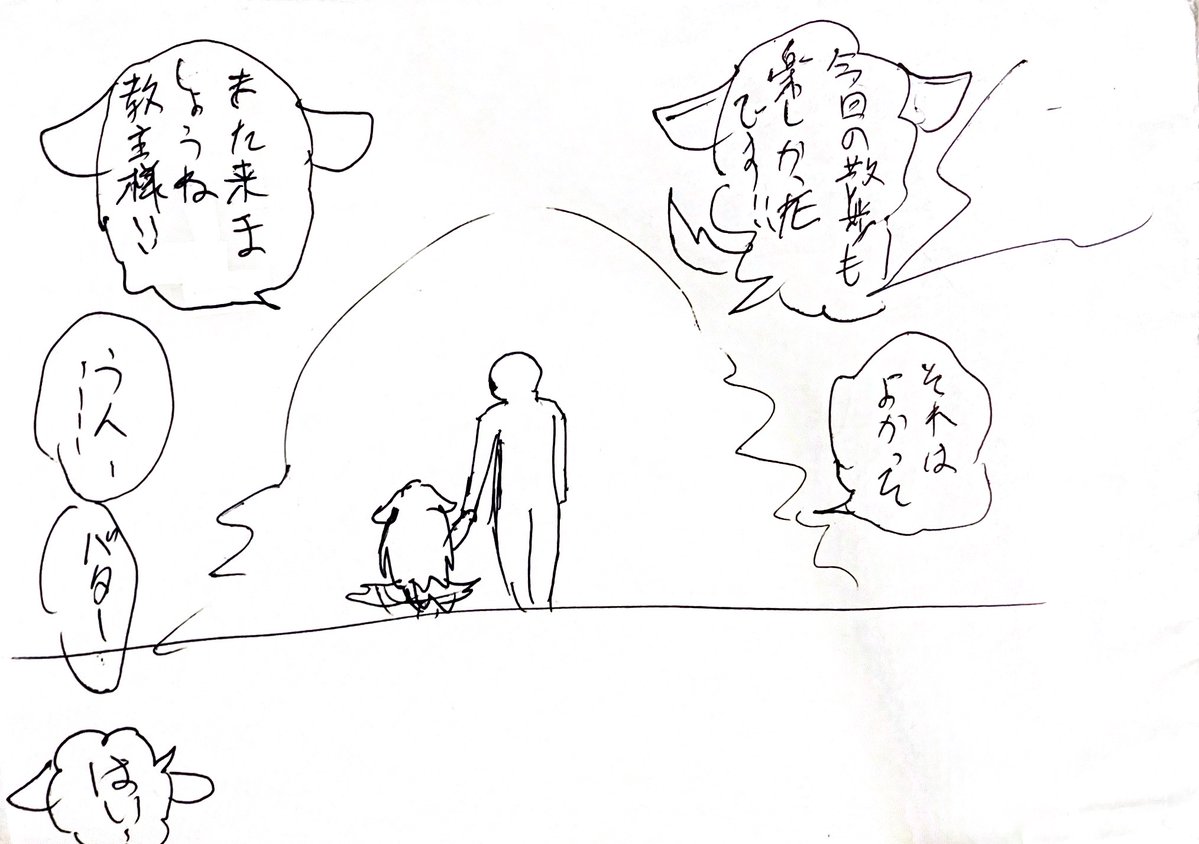 今回の散歩も
楽しかった
です!!
それは
よかって
また来ま
しょうね
教主様!!
うんー
バター
はい